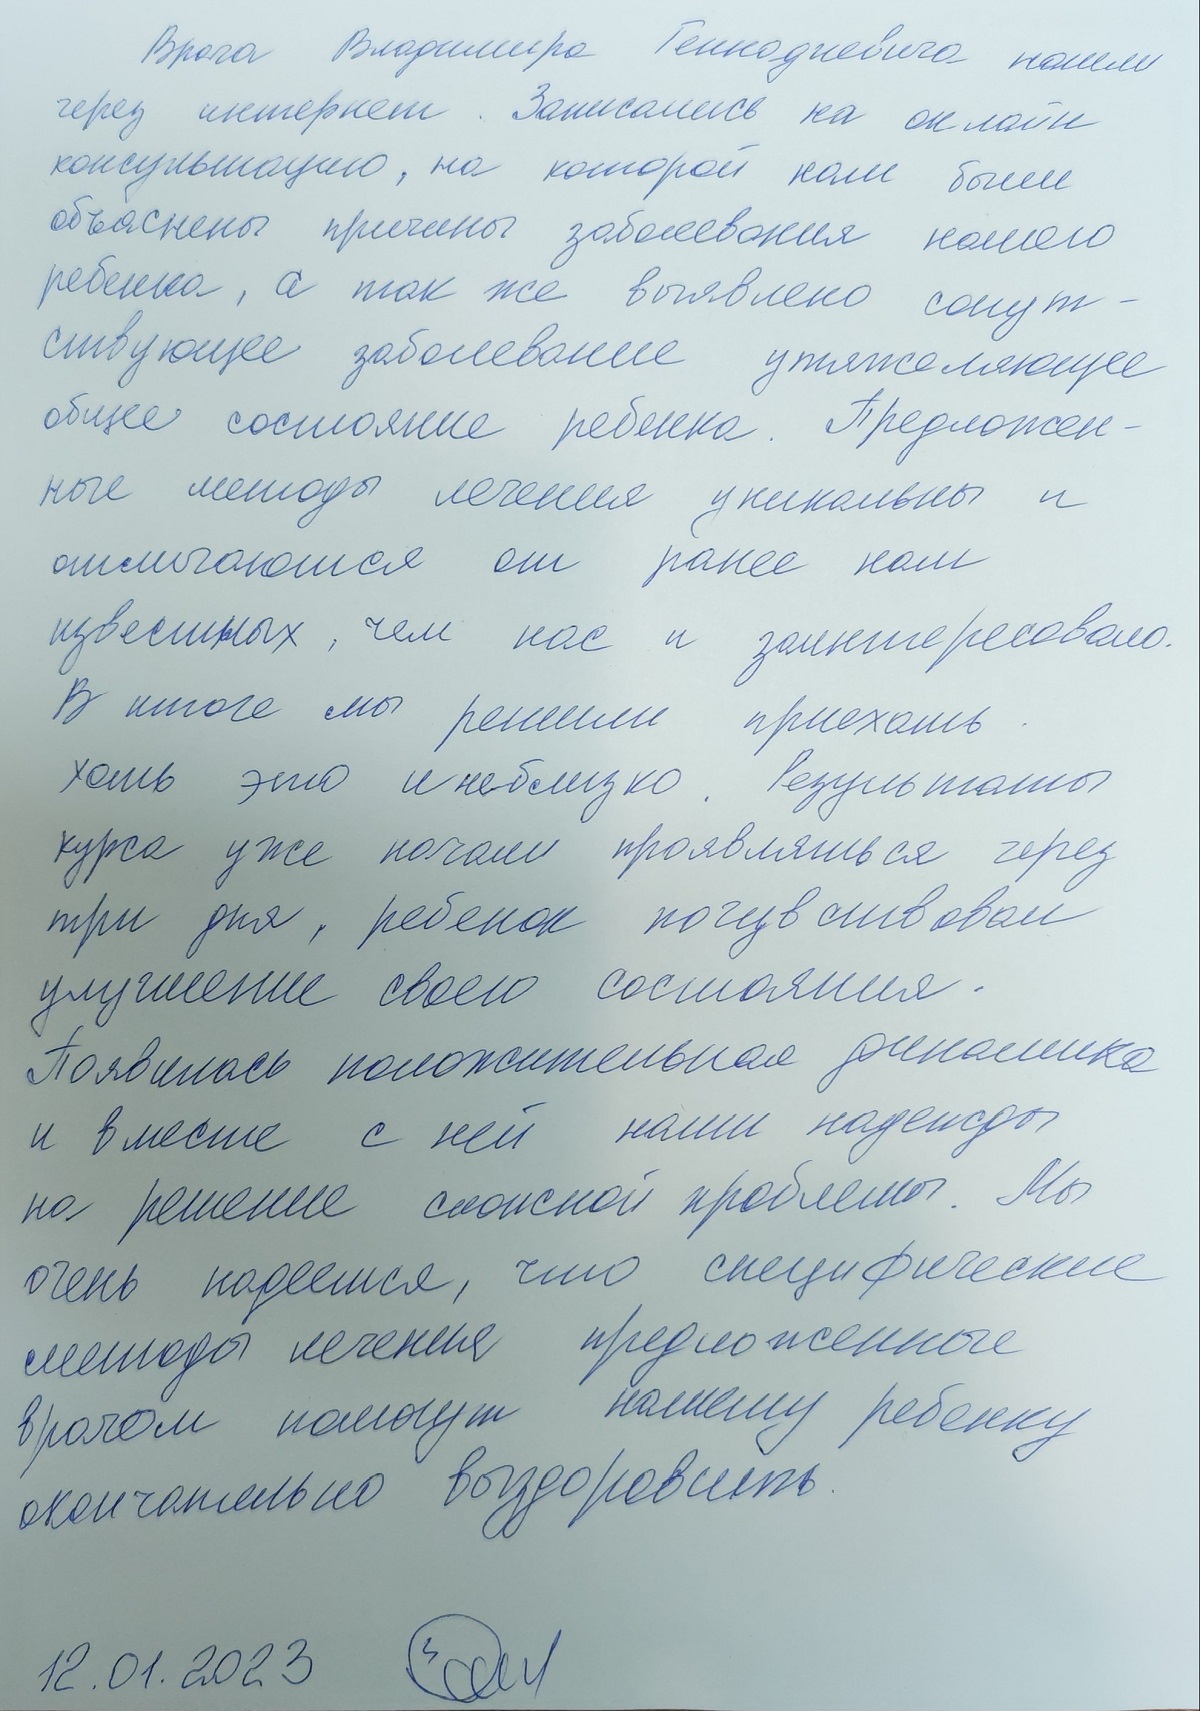 Врача Владимира Геннадиевича нашли
через интернет. Записались на онлайн
консультацию, на которой нам были
объяснены причины заболевания нашего
ребенка, а так же выявлено сопут-
ствующее заболевание утяжеляющее
общее состояние ребенка. Предложен-
ные методы лечения уникальны и
отличаются от ранее нам
известных, чем нас и заинтересовало.
В итоге мы решили приехать.
хоть это и неблизко. Результаты
курса уже начали проявляться через
три дня, ребенок почувствовал
улучшение своего состояния.
Появилась положительная динамика
и вместе с ней наши надежды
на решение сложной проблемы. Мы
очень надеемся, что специфические
методы лечения предложенные
врачом помогут нашему ребенку
окончательно выздоровить.
12.01.2023